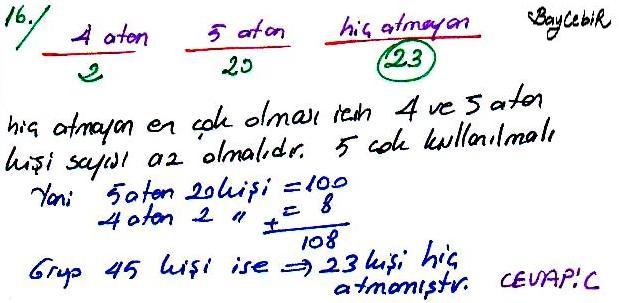 16./ 4 atan 5 atan hiç atmayan BayCebiR
2 20 23
hiç atmayan en çok olması için 4 ve 5 atan
kişi sayısı az olmalıdır. 5 çok kullanılmalı
Yani 5 atan 20 kişi = 100
4 atan 2 " = 8
+
108
Grup 45 kişi ise ⇒ 23 kişi hiç
atmamıştır. CEVAP: C